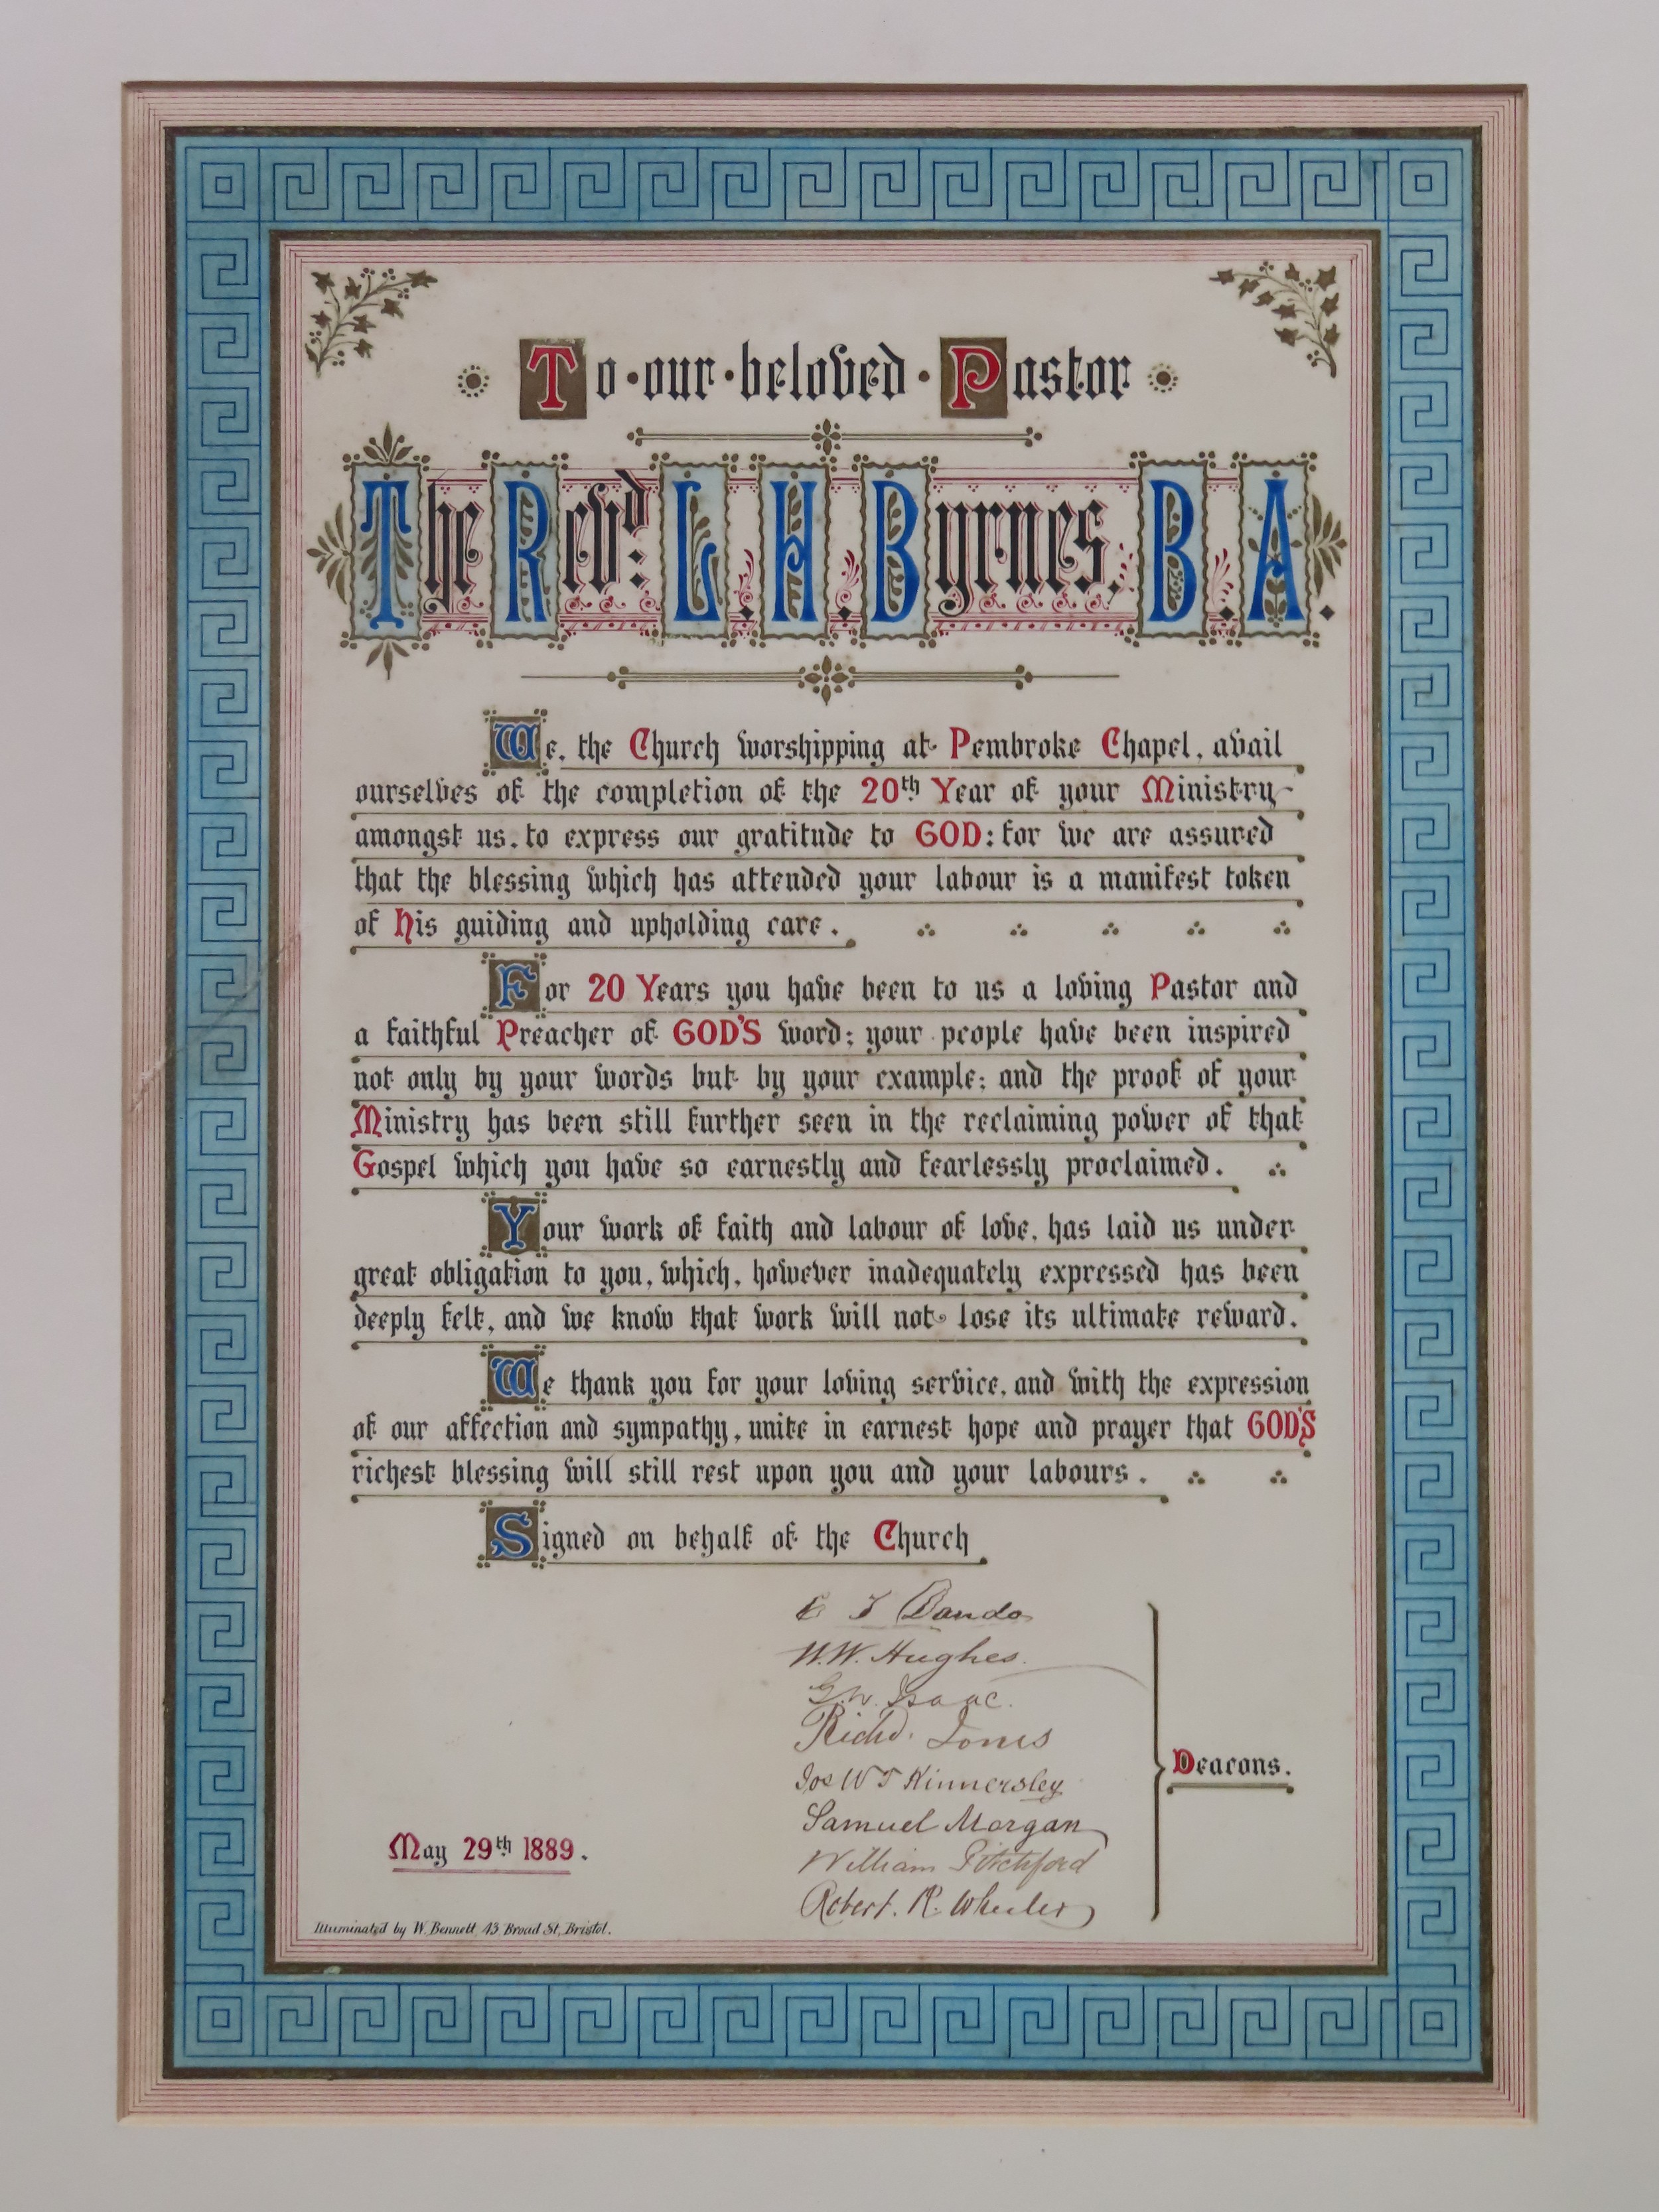 To · our · beloved · Pastor
The Revd: L. H. Byrnes, B. A.
We, the Church worshipping at Pembroke Chapel, avail
ourselves of the completion of the 20th Year of your Ministry
amongst us, to express our gratitude to GOD: for we are assured
that the blessing which has attended your labour is a manifest token
of His guiding and upholding care.
For 20 Years you have been to us a loving Pastor and
a faithful Preacher of GOD'S word; your people have been inspired
not only by your words but by your example; and the proof of your
Ministry has been still further seen in the reclaiming power of that
Gospel which you have so earnestly and fearlessly proclaimed.
Your work of faith and labour of love, has laid us under
great obligation to you, which, however inadequately expressed has been
deeply felt, and we know that work will not lose its ultimate reward.
We thank you for your loving service, and with the expression
of our affection and sympathy, unite in earnest hope and prayer that GOD'S
richest blessing will still rest upon you and your labours.
Signed on behalf of the Church
W. W. Hughes.
G. W. Isaac.
Richd. Jones
Jos W T Kinnersley
Samuel Morgan
William Pitchford
Robert. R. Wheeler
Deacons.
May 29th 1889.
Illuminated by W. Bennett, 43 Broad St, Bristol.